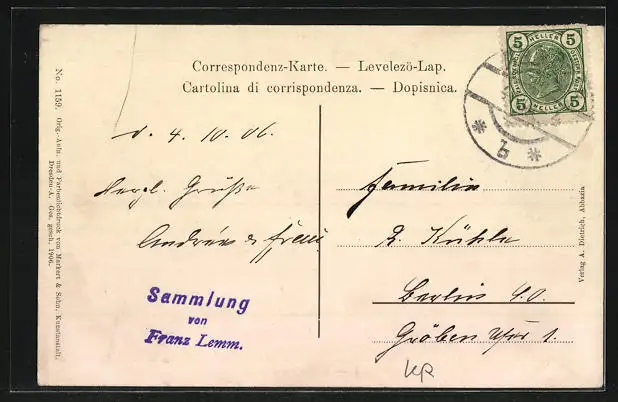 Correspondenz-Karte. — Levelezö-Lap.
Cartolina di corrispondenza. — Dopisnica.
No. 1159. Orig.-Aufn. und Farbenlichtdruck von Markert & Sohn, Kunstanstalt.
Dresden-A. Ges. gesch. 1906.
d. 4. 10. 06.
Herzl. Grüße
Andrées & Frau
Sammlung
von
Franz Lemm.
5 HELLER 5
5 HELLER 5
b
Familie
Kühle
Berlin S.O.
Gröben Ufer 1.
Verlag A. Dietrich, Abbazia